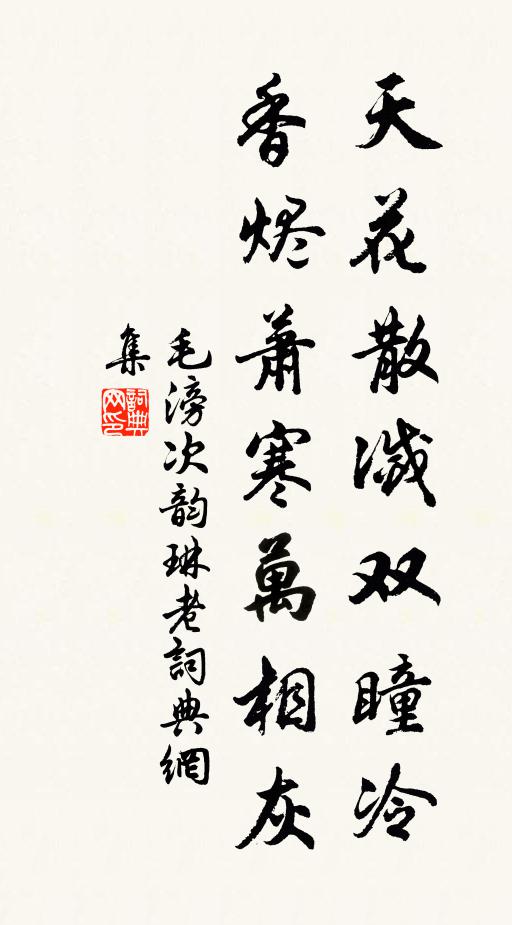 天花散滅双瞳冷
香烬萧寒萬相灰
毛滂次韵琳老詞典網
集
詞典
网印